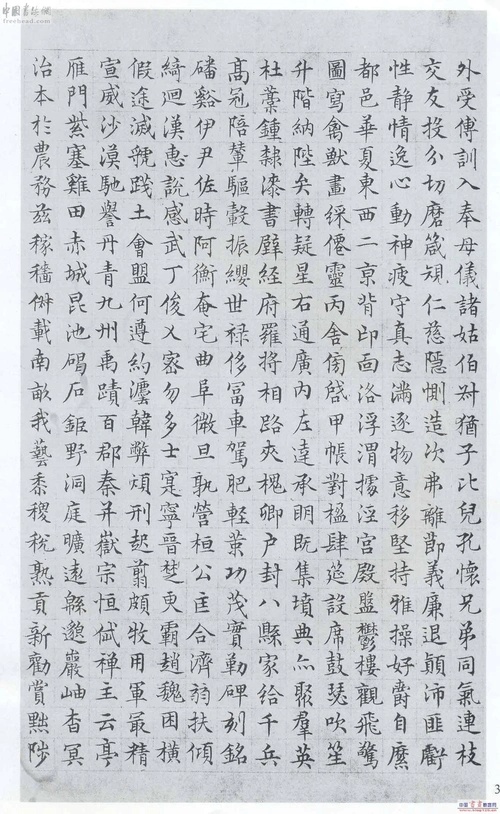 中国书法网
freehead.com
外受傅訓入奉母儀諸姑伯叔猶子比兒孔懷兄弟同氣連枝
交友投分切磨箴規仁慈隱惻造次弗離節義廉退顛沛匪虧
性靜情逸心動神疲守真志滿逐物意移堅持雅操好爵自縻
都邑華夏東西二京背邙面洛浮渭據涇宮殿盤鬱樓觀飛驚
圖寫禽獸畫綵僊靈丙舍傍啓甲帳對楹肆筵設席鼓瑟吹笙
升階納陛弁轉疑星右通廣內左達承明既集墳典亦聚羣英
杜藁鍾隸漆書壁經府羅將相路夾槐卿户封八縣家給千兵
高冠陪輦驅轂振纓世禄侈富車駕肥輕策功茂實勒碑刻銘
磻谿伊尹佐時阿衡奄宅曲阜微旦孰營桓公匡合濟弱扶傾
綺迴漢惠說感武丁俊乂密勿多士寔寧晉楚更霸趙魏困橫
假途滅虢踐土會盟何遵約灋韓弊煩刑起翦頗牧用軍最精
宣威沙漠馳譽丹青九州禹蹟百郡秦并嶽宗恒岱禪主云亭
雁門紫塞雞田赤城昆池碣石鉅野洞庭曠遠緜邈巖岫杳冥
治本於農務兹稼穡俶載南畝我藝黍稷稅熟貢新勸賞黜陟
3